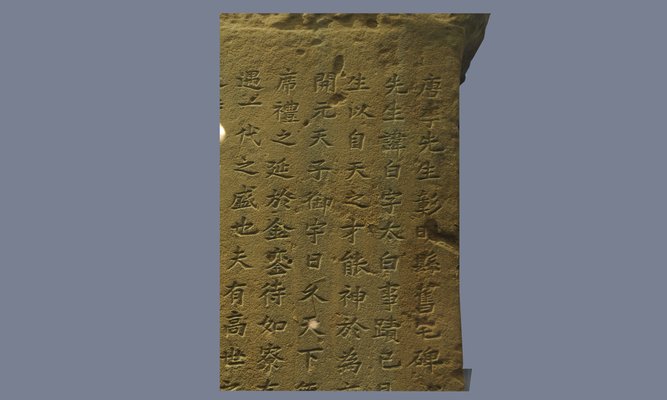 唐李先生彰明縣舊宅碑
先生諱白字太白事蹟已
生以自天之才能神於為
開元天子御宇日久天下
席禮之延於金鑾待如
遇一代之盛也夫有高世